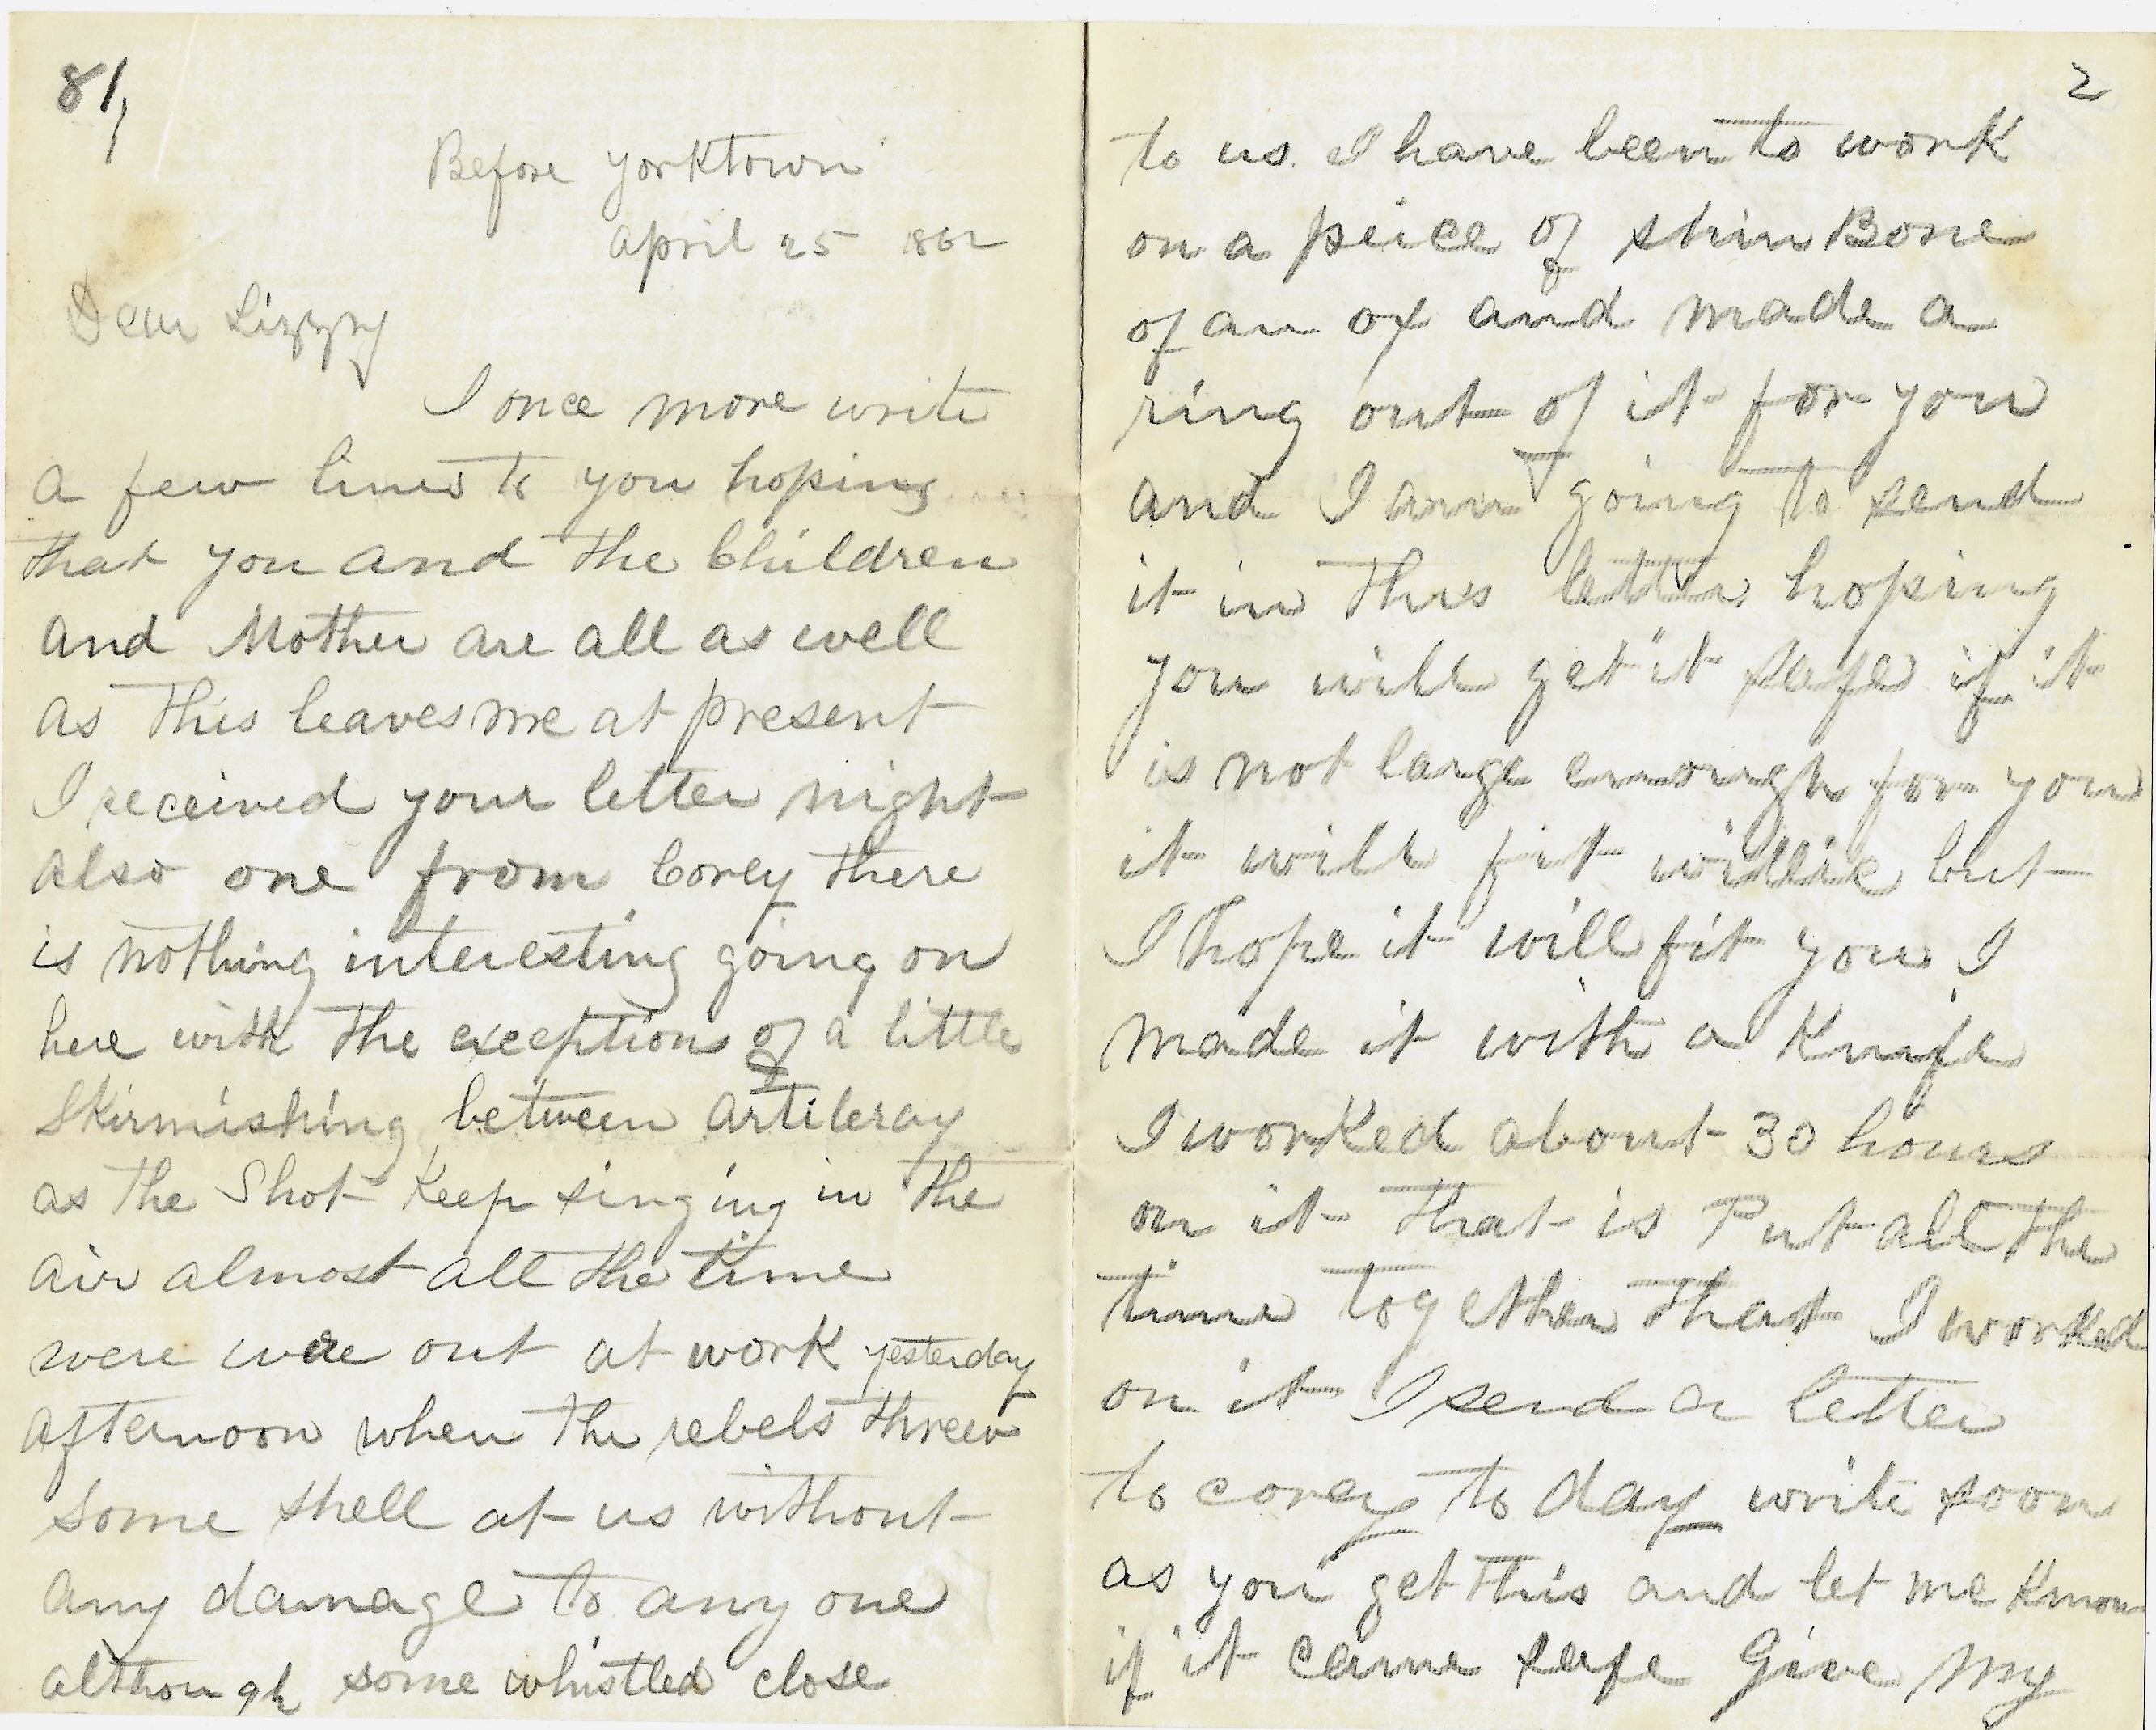 81,
Before yorktown
april 25 1862
Dear Lizzy
I once more write
a few lines to you hoping
that you and the Children
and Mother are all as well
as this leaves me at present
I received your letter night
also one from Corey there
is nothing interesting going on
here with the exception of a little
Skirmishing between artileray
as the Shot Keep singing in the
air almost all the time
were were out at work yesterday
afternoon when the rebels threw
some shell at us without
any damage to any one
although some whistled close
2
to us. I have been to work
on a peice of shin Bone
of an ox and made a
ring out of it for you
and I am going to send
it in this letter hoping
you will get it safe if it
is not large enough for you
it will fit willie but
I hope it will fit you I
made it with a Knife
I worked about 30 hours
on it that is Put all the
time together that I worked
on it I send a letter
to corey to day write soon
as you get this and let me Know
if it came safe Give my